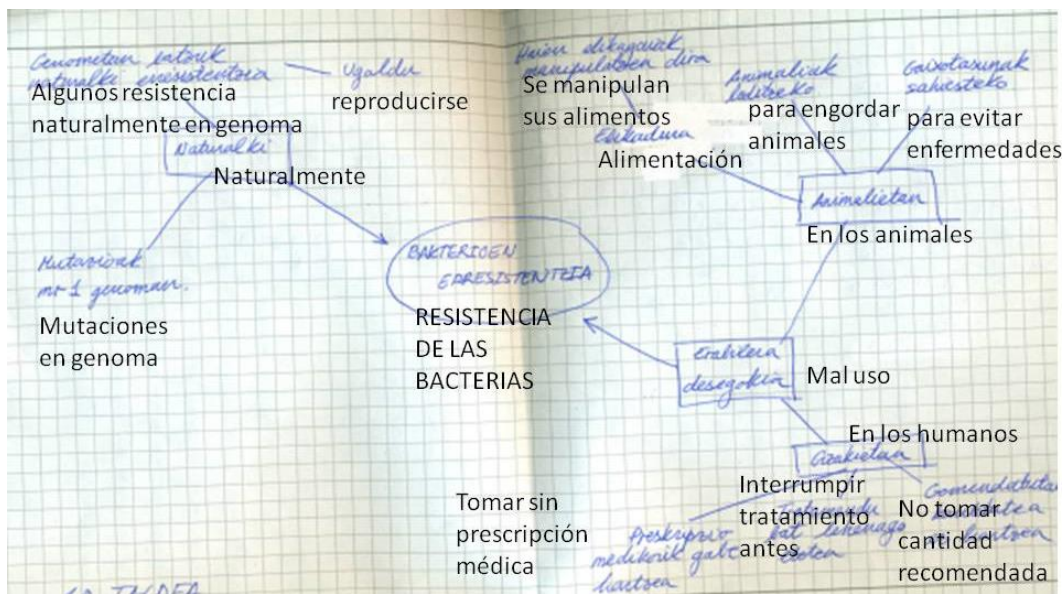 naturalki erresistentzia
Ugaldu
Algunos resistencia
naturalmente en genoma
reproducirse
Naturalki
Naturalmente
Mutazioak
genoman.
Mutaciones
en genoma
BAKTERIOEN
ERRESISTENTZIA
RESISTENCIA
DE LAS
BACTERIAS
manipulatzen dira
Se manipulan
sus alimentos
Elikadura
Alimentación
Animaliak
para engordar
animales
Gaixotasunak
sahiesteko
para evitar
enfermedades
Animalietan
En los animales
Erabilera
desegokia
Mal uso
En los humanos
Gizakietan
Tomar sin
prescripción
médica
Preskripzio
medikorik gabe
hartzea
Interrumpir
tratamiento
antes
bat lehenago
No tomar
cantidad
recomendada
TALDEA